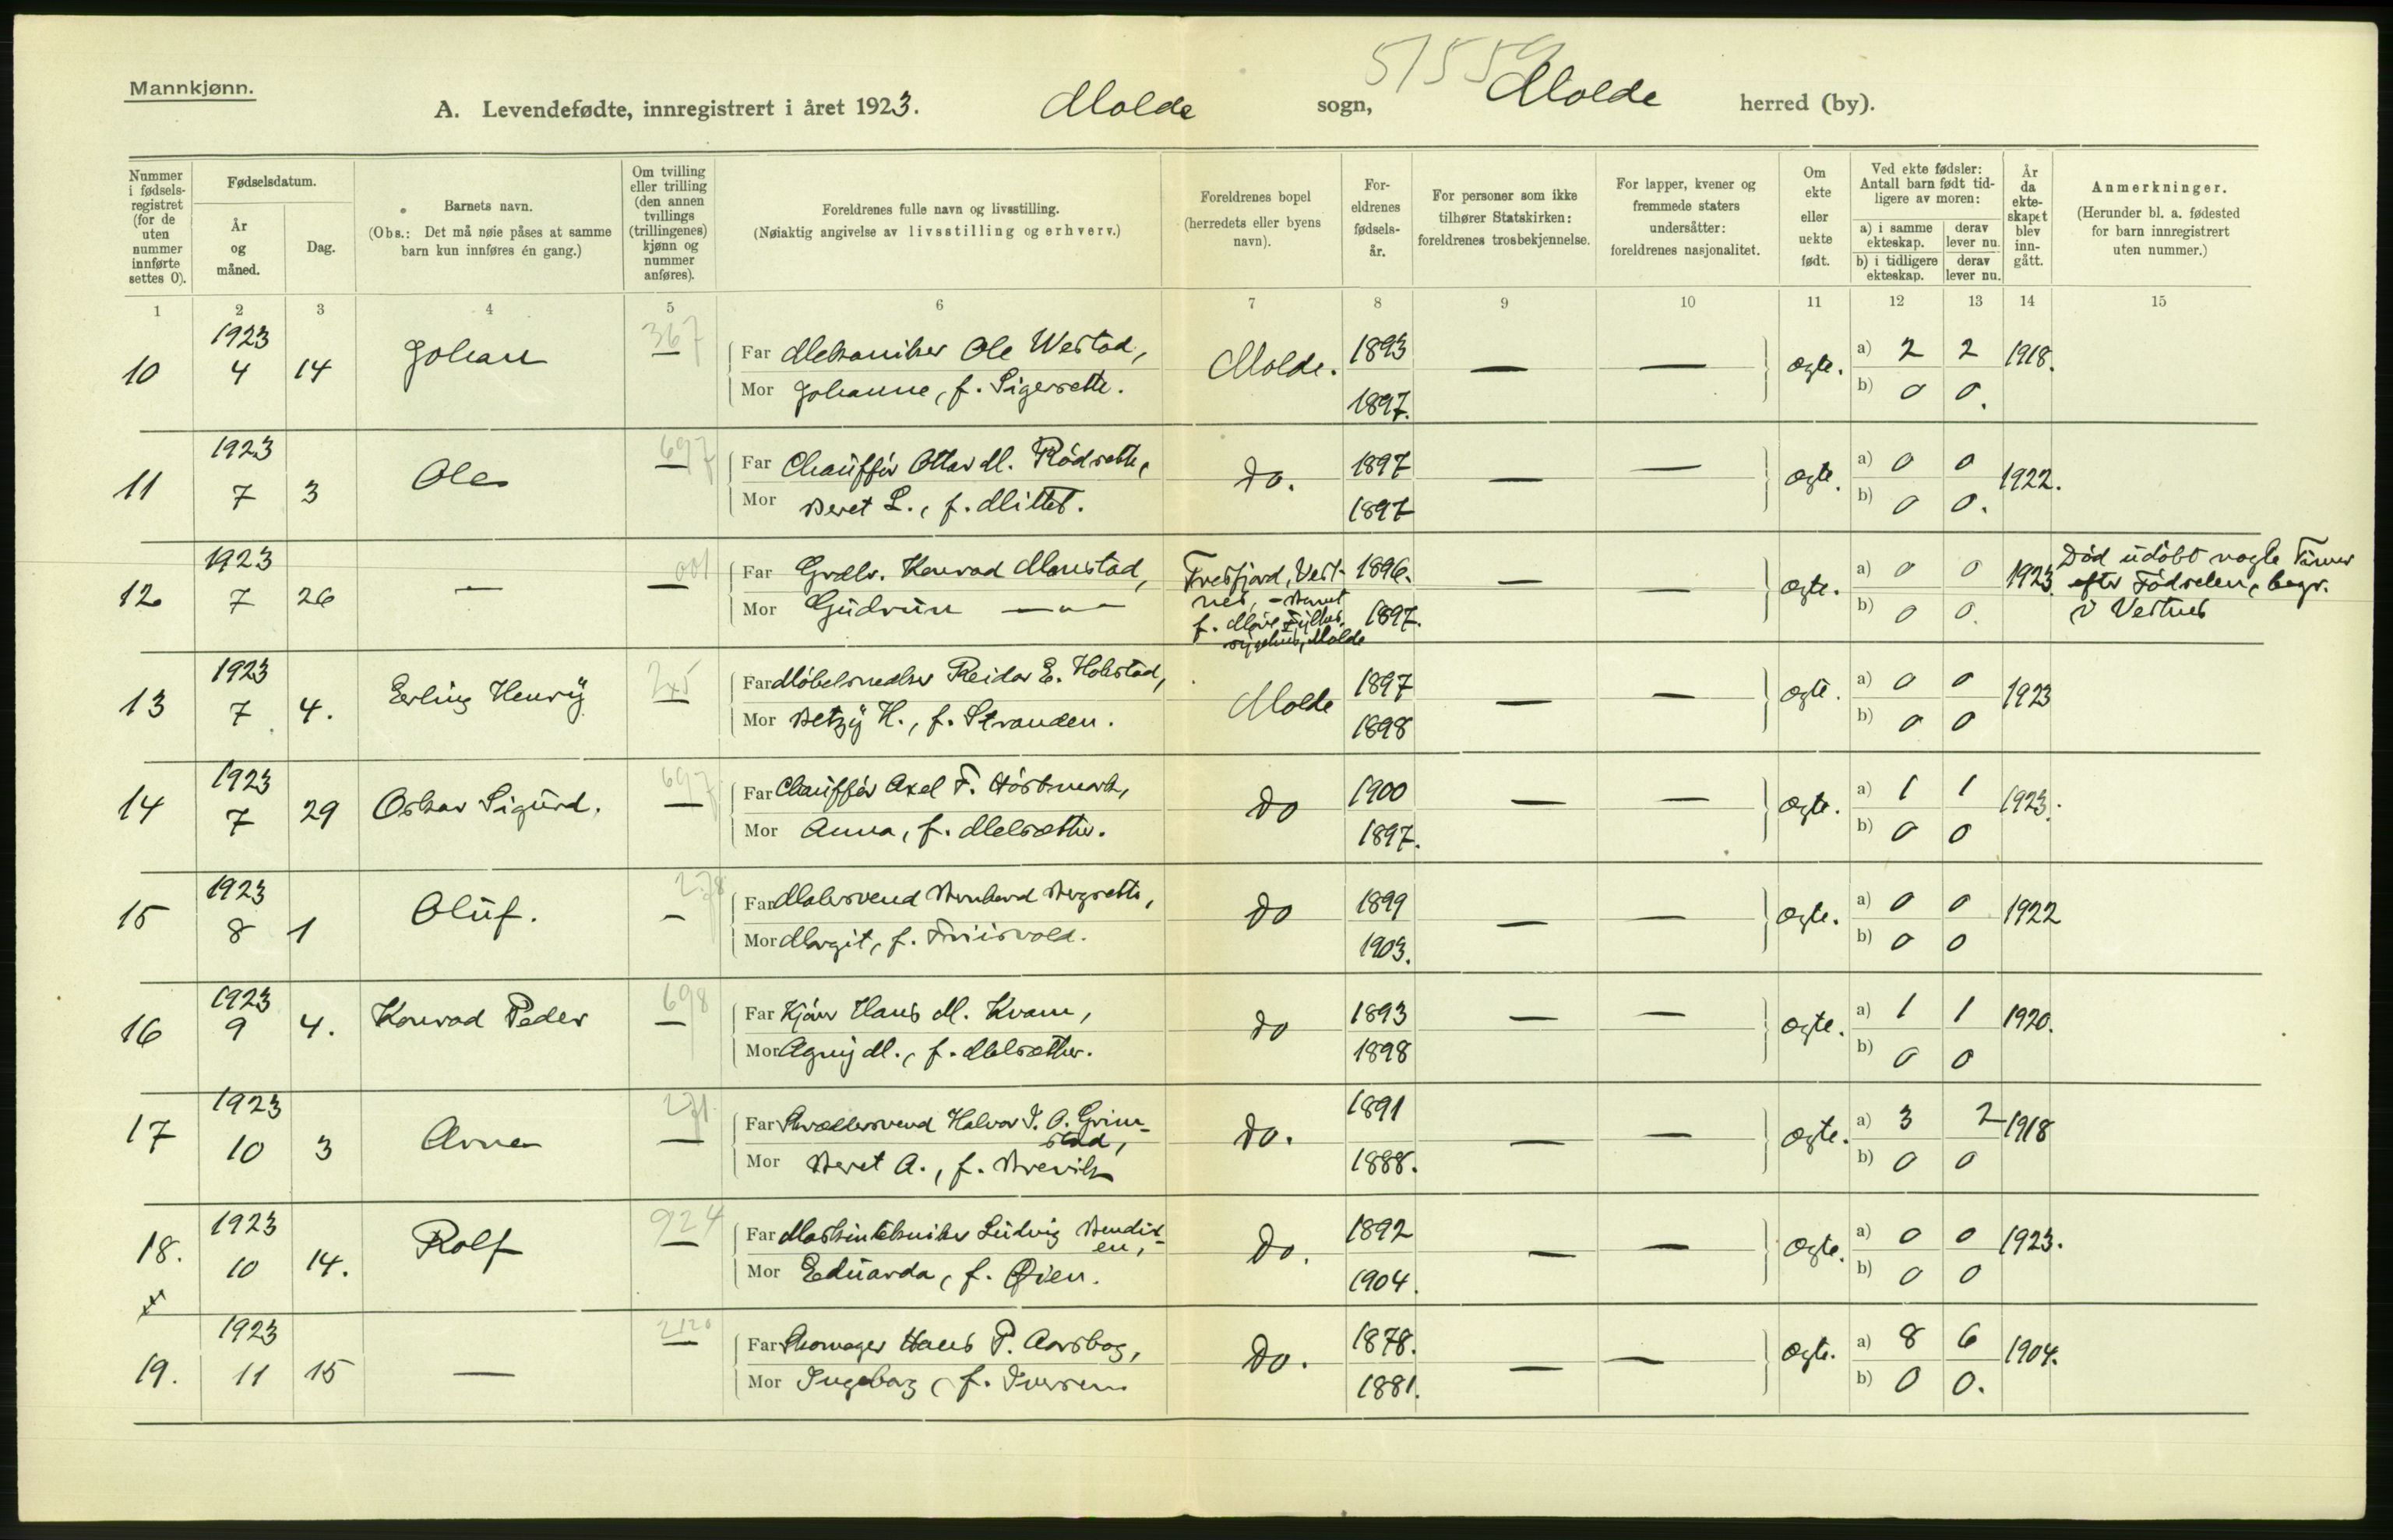 51559
Mannkjønn.
A. Levendefødte, innregistrert i året 1923. Molde sogn, Molde herred (by).
Nummer i fødsels-registret (for de uten nummer innførte settes 0).
Fødselsdatum.
År og måned.
Dag.
Barnets navn.
(Obs.: Det må nøie påses at samme barn kun innføres én gang.)
Om tvilling eller trilling (den annen tvillings (trillingenes) kjønn og nummer anføres).
Foreldrenes fulle navn og livsstilling.
(Nøiaktig angivelse av livsstilling og erhverv.)
Foreldrenes bopel
(herredets eller byens navn).
For-eldrenes fødsels-år.
For personer som ikke tilhører Statskirken: foreldrenes trosbekjennelse.
For lapper, kvener og fremmede staters undersåtter: foreldrenes nasjonalitet.
Om ekte eller uekte født.
Ved ekte fødsler: Antall barn født tid-ligere av moren:
a) i samme ekteskap.
derav lever nu.
b) i tidligere ekteskap.
derav lever nu.
År da ekte-skapet blev inn-gått.
Anmerkninger.
(Herunder bl. a. fødested for barn innregistrert uten nummer.)
1 2 3 4 5 6 7 8 9 10 11 12 13 14 15
10 1923 4 14 Johan 367 — Far Mekaniker Ole Westad, Molde. 1893 — — Ægte. a) 2 2 1918.
Mor Johanne, f. Sigersette. 1897. b) 0 0.
11 1923 7 3 Ole 697 — Far Chauffør Ottar M. Rødsette, Do. 1897 — — Ægte. a) 0 0 1922.
Mor Beret L., f. Mittet. 1897 b) 0 0.
12 1923 7 26 — 001 — Far Grdbr. Konrad Monstad, Tresfjord, Vest- 1896. — — Ægte. a) 0 0 1923 Død udøbt nogle Timer
Mor Gudrun —"— nes, - Barnet 1897. b) 0 0. efter Fødselen, begr.
f. Møre Fylkes i Vestnes
sygehus, Molde
13 1923 7 4. Erling Henry 245 — Far Møbelsnedker Reidar E. Hokstad, Molde 1897 — — Ægte. a) 0 0 1923
Mor Betzy H., f. Stranden. 1898 b) 0 0
14 1923 7 29 Oskar Sigurd. 697 — Far Chauffør Axel F. Hørsmark, Do 1900 — — Ægte. a) 1 1 1923.
Mor Anna, f. Melsæther. 1897. b) 0 0
15 1923 8 1 Oluf. 278 — Far Malersvend Bernhard Bergsette, Do 1899 — — Ægte. a) 0 0 1922
Mor Margit, f. Friisvold. 1903. b) 0 0
16 1923 9 4. Konrad Peder 698 — Far Kjører Hans M. Kvam, Do 1893 — — Ægte. a) 1 1 1920.
Mor Agny M., f. Melsæther. 1898 b) 0 0
17 1923 10 3 Arne 271 — Far Skræddersvend Halvor I. O. Grim- Do. 1891 — — Ægte. a) 3 2 1918
stad,
Mor Beret A., f. Brevik 1888. b) 0 0
18. 1923 10 14. Rolf 924 — Far Maskintekniker Ludvig Bendix- Do. 1892 — — Ægte. a) 0 0 1923.
en,
Mor Eduarda, f. Øien. 1904. b) 0 0
19. 1923 11 15 — 2120 — Far Skomager Hans P. Aarsbog, Do. 1878. — — Ægte. a) 8 6 1904.
Mor Ingeborg, f. Iversen. 1881. b) 0 0.